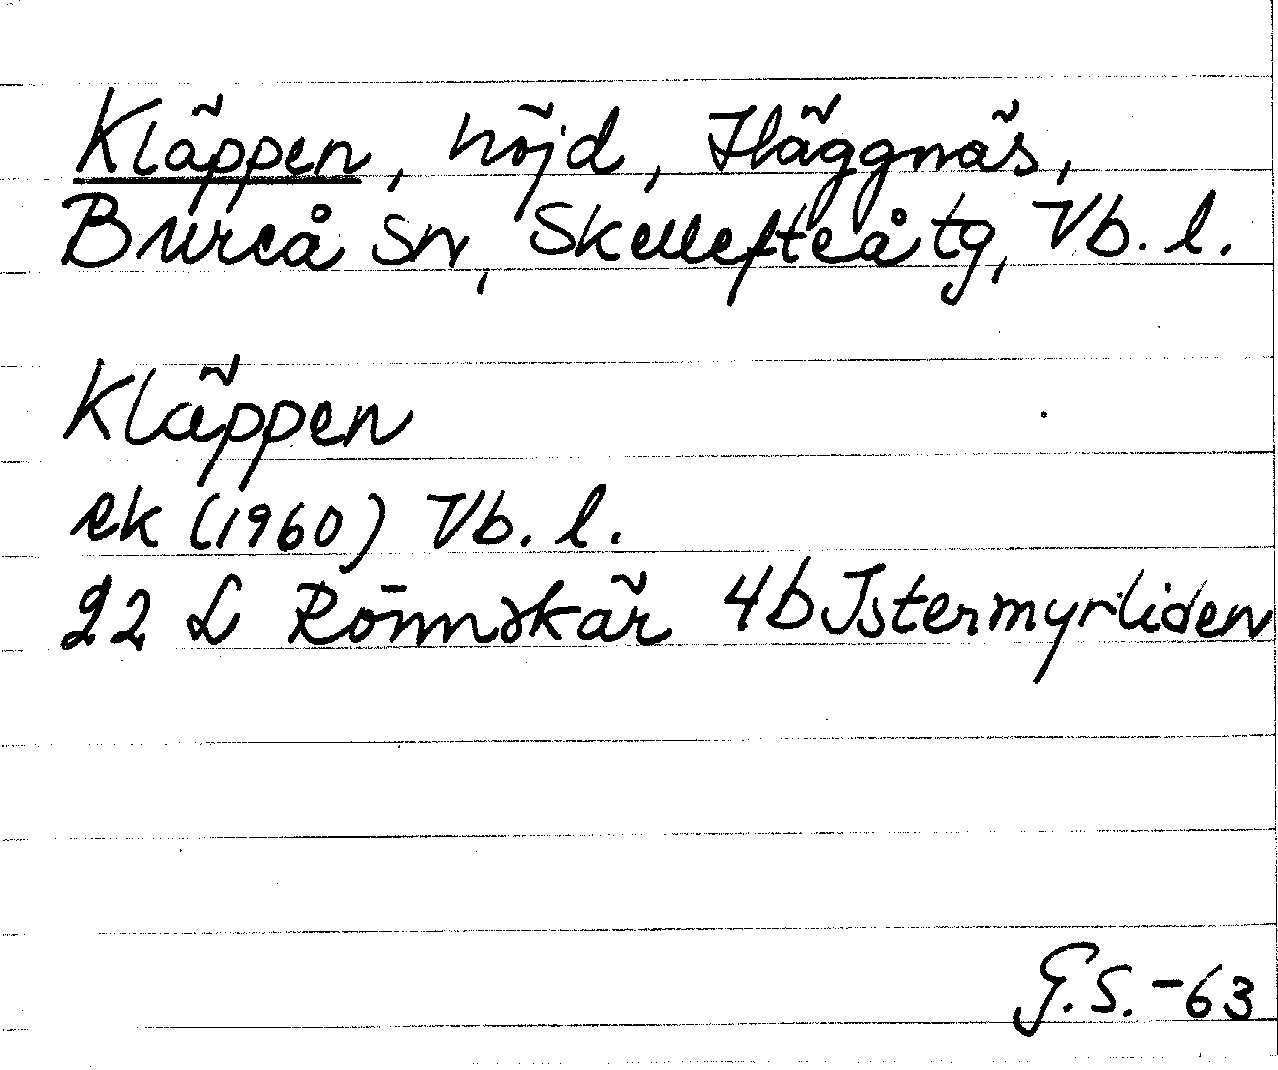 Kläppen, höjd, Häggnäs,
Bureå sn, Skellefteå tg, Vb. l.
Kläppen
ek (1960) Vb. l.
22 L Rönnskär 4b Istermyrliden
G.S. -63